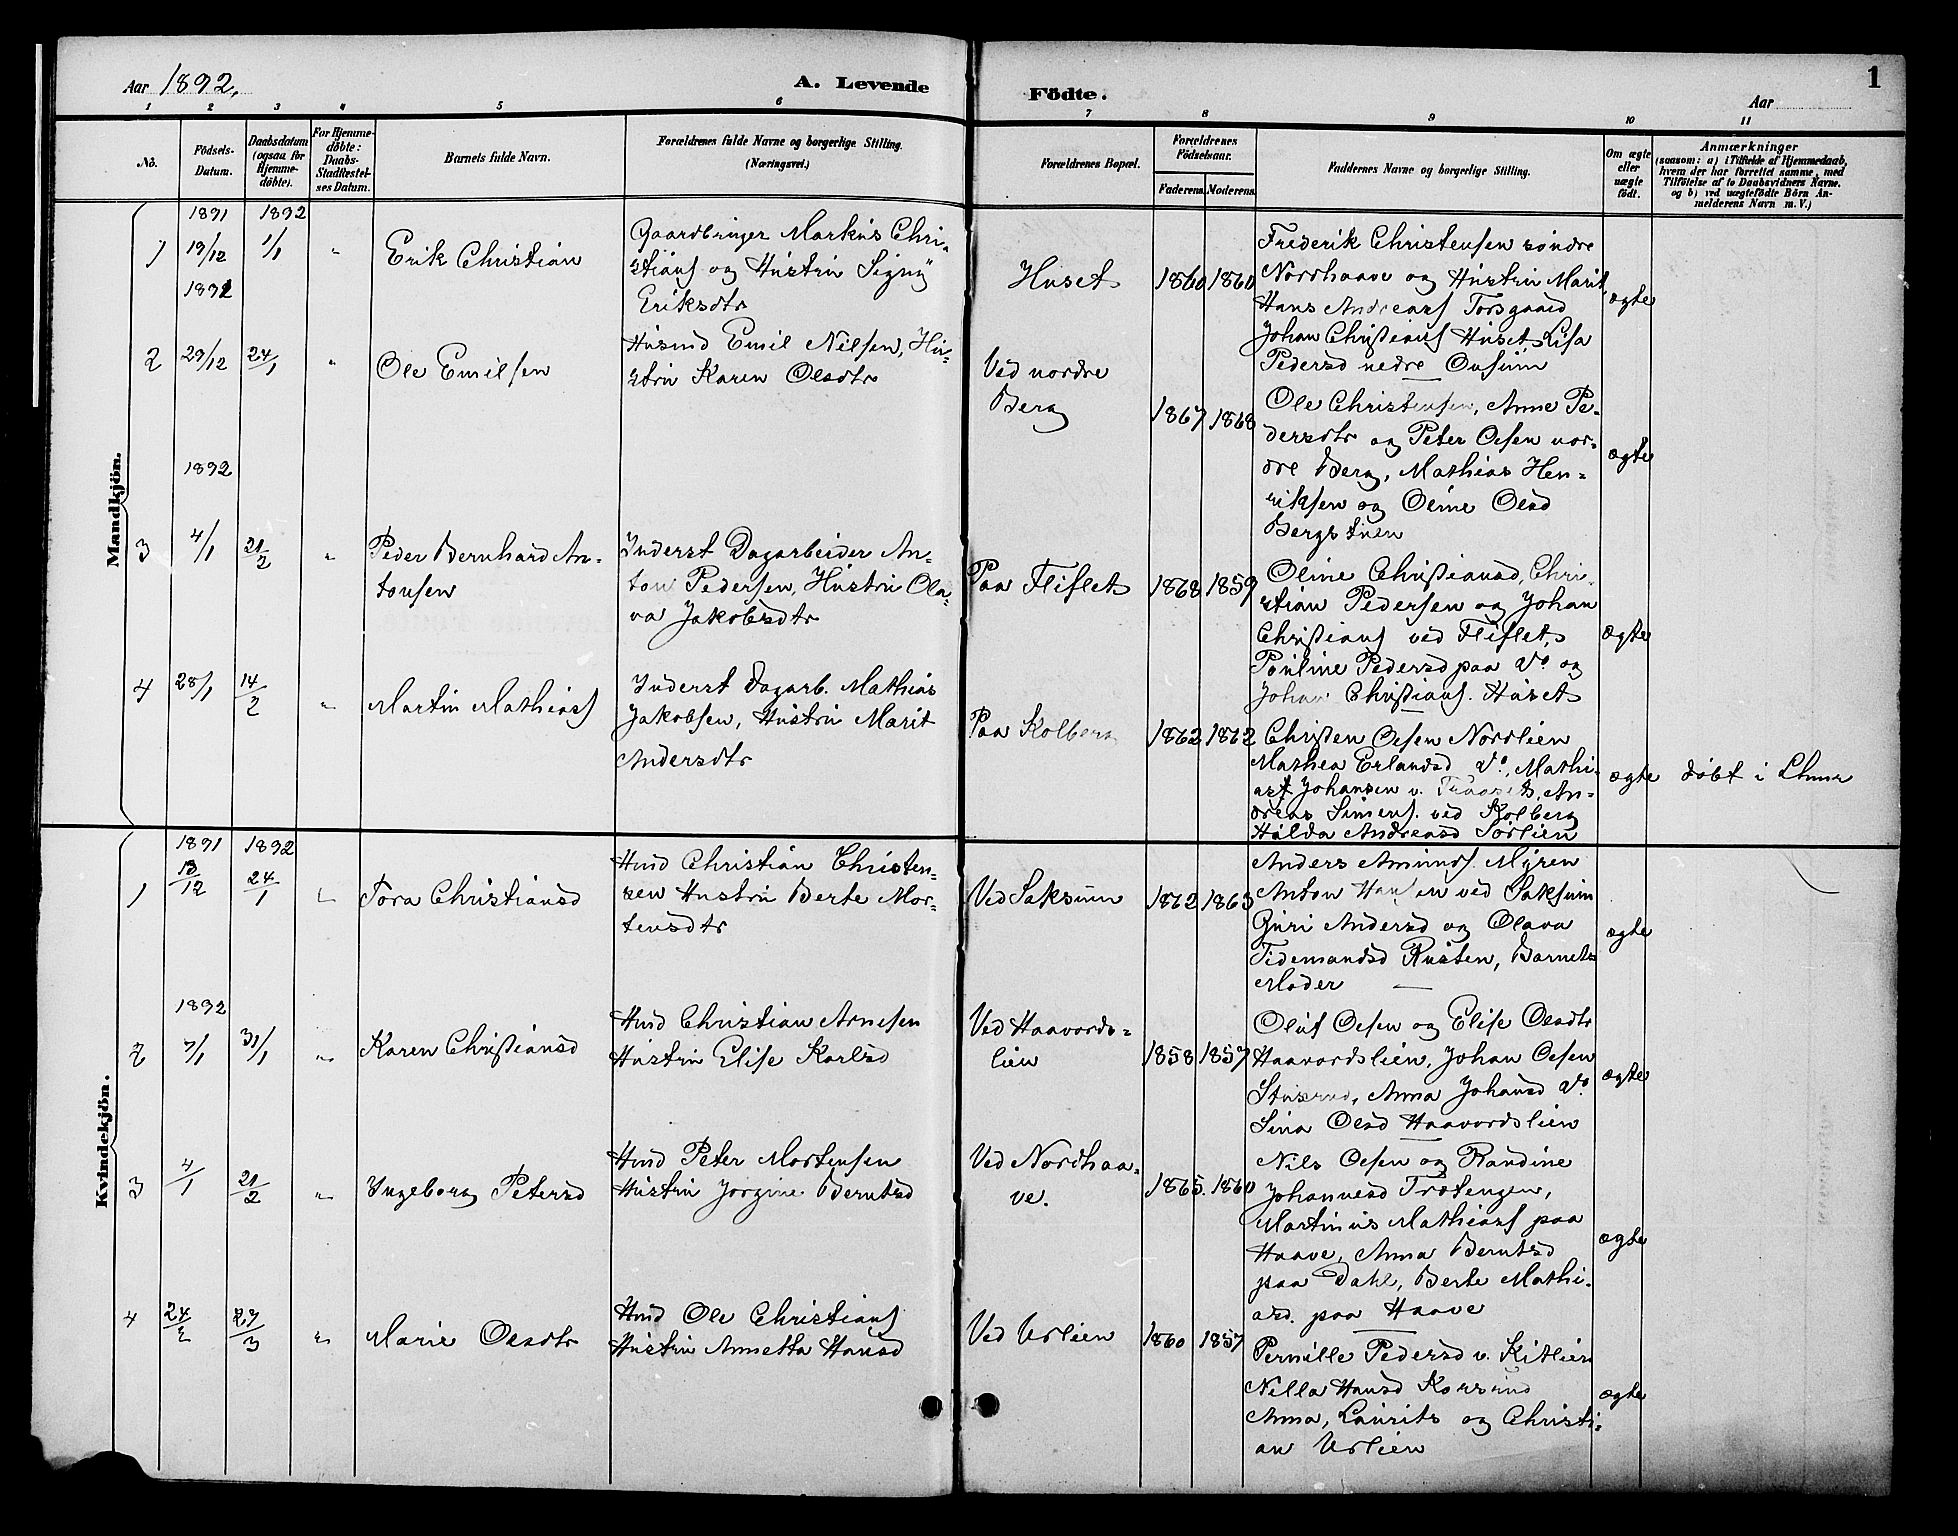 Aar 1892.
A. Levende
Födte.
Aar
1
1 2 3 4 5 6 7 8 9 10 11
No.
Födsels-
Datum.
Daabsdatum
(ogsaa for
Hjemme-
döbte).
For Hjemme-
döbte:
Daabs-
Stadfestel-
ses Datum.
Barnets fulde Navn.
Forældrenes fulde Navne og borgerlige Stilling.
(Næringsvei.)
Forældrenes Bopæl.
Forældrenes
Födselsaar.
Faderens. Moderens.
Faddernes Navne og borgerlige Stilling.
Om ægte
eller
uægte
født.
Anmærkninger
(saasom: a) i Tilfælde af Hjemmedaab,
hvem der har forrettet samme, med
Tilföielse af to Daabsvidners Navne.
og b) ved uægtefödte Börn An-
melderens Navn m. V.)
Mandkjön.
1891 1892
1 19/12 1/1 "
Erik Christian
Gaardbruger Markus Chri-
stians og Hustru Signy
Eriksdtr
Huset
1860 1860
Frederik Christensen söndre
Nordhaave og Hustru Marit,
Hans Andreas Torsgaard
Johan Christians Huset Lisa
Pedersd nedre Ousum
ægte
1892
2 29/12 24/1 "
Ole Emilsen
Husmd Emil Nilsen, Hu-
stru Karen Olsdtr
Ved nordre
Berg
1867 1868
Ole Christensen, Anne Pe-
dersdtr og Peter Olsen nor-
dre Berg, Mathias Hen-
riksen og Oline Olsd
Bergstuen
ægte
1892
3 4/1 21/2 "
Peder Bernhard An-
tonsen
Inderst Dagarbeider An-
ton Pedersen, Hustru Ola-
va Jakobsdtr
Paa Fliflet
1868 1859
Oline Christiansd, Chri-
stian Pedersen og Johan
Christians ved Fliflet,
Pauline Pedersd paa do og
Johan Christians. Huset
ægte
4 28/1 14/2 "
Martin Mathias
Inderst Dagarb. Mathias
Jakobsen, Hustru Marit
Andersdtr
Paa Kolberg
1862 1862
Christen Olsen Nordlien
Mathea Erlandsd do, Mathi-
as Johansen v. An-
dreas Simens. ved Kolberg
Hulda Andreasd Sörlien
ægte
döbt i Lhmr
Kvindekjön.
1891 1892
1 13/12 24/1 "
Tora Christiansd
Hmd Christian Christen-
sen Hustru Berte Mor-
tensdtr
Ved Saksum
1862 1863
Anders Amunds. Myren
Anton Hansen ved Saksum
Guri Andersd og Olava
Tidemandsd Rusten, Barnets
Moder
ægte
1892
2 7/1 31/1 "
Karen Christiansd
Hmd Christian Arnesen
Hustru Elise Karlsd
Ved Haavords-
lien
1858 1857
Oluf Olsen og Elise Olsdtr
Haavordslien, Johan Olsen
Stuserud, Anna Johansd do
Sina Olsd Haavordslien
ægte
3 4/1 21/2 "
Ingeborg Petersd
Hmd Peter Mortensen
Hustru Jörgine Berntsd
Ved Nordhaa-
ve.
1865. 1860
Nils Olsen og Randine
Johannesd Trætengen,
Martinus Mathias paa
Haave, Anna Berntsd
paa Dahl, Berte Mathi-
asd. paa Haave
ægte
4 24/2 27/3 "
Marie Olsdtr
Hmd Ole Christians
Hustru Annetta Hansd
Ved Urlien
1860 1857
Pernille Pedersd v. Kitlien
Nilla Hansd Korsrud
Anna, Laurits og Christi-
an Urlien
ægte